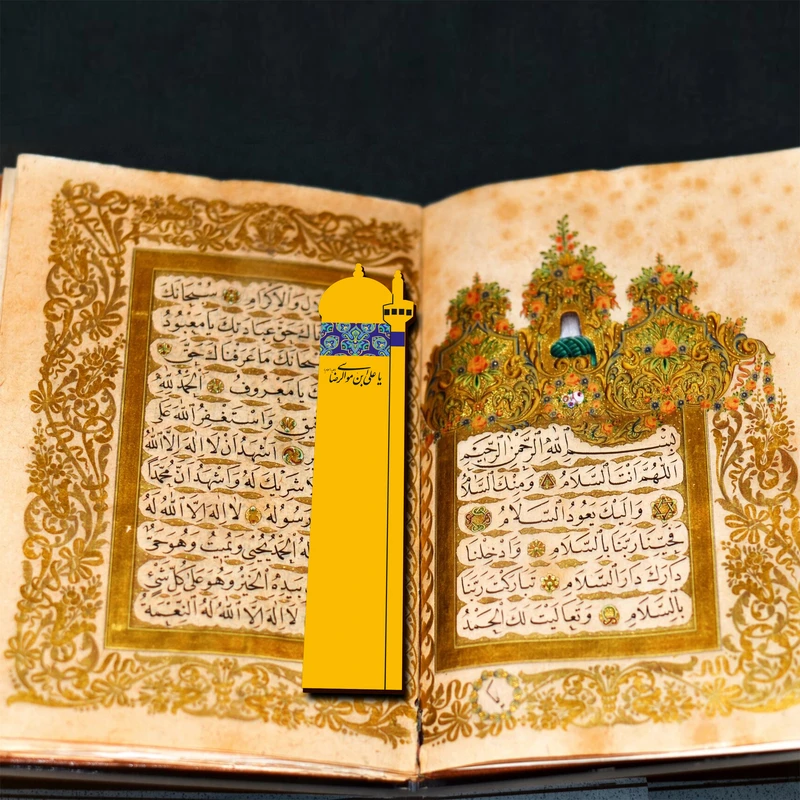 بسم الله الرحمن الرحيم
اللهم انت السلام ومنك السلام
واليك يعود السلام
فحينا ربنا بالسلام وادخلنا
دارك دار السلام تباركت ربنا
بالسلام وتعاليت لك الحمد
والاكرام سبحانك
حق عبادتك يا معبود
ما عرفناك حق
يا معروف الحمد لله
واستغفر الله على
اشهد ان لا اله الا الله
لا شريك له واشهد ان محمدا
ورسوله لا اله الا الله له
الحمد يحيي ويميت وهو حي
بيده الخير وهو على كل شي
لا اله الا الله له النعمة
یا علی ابن موسی الرضا